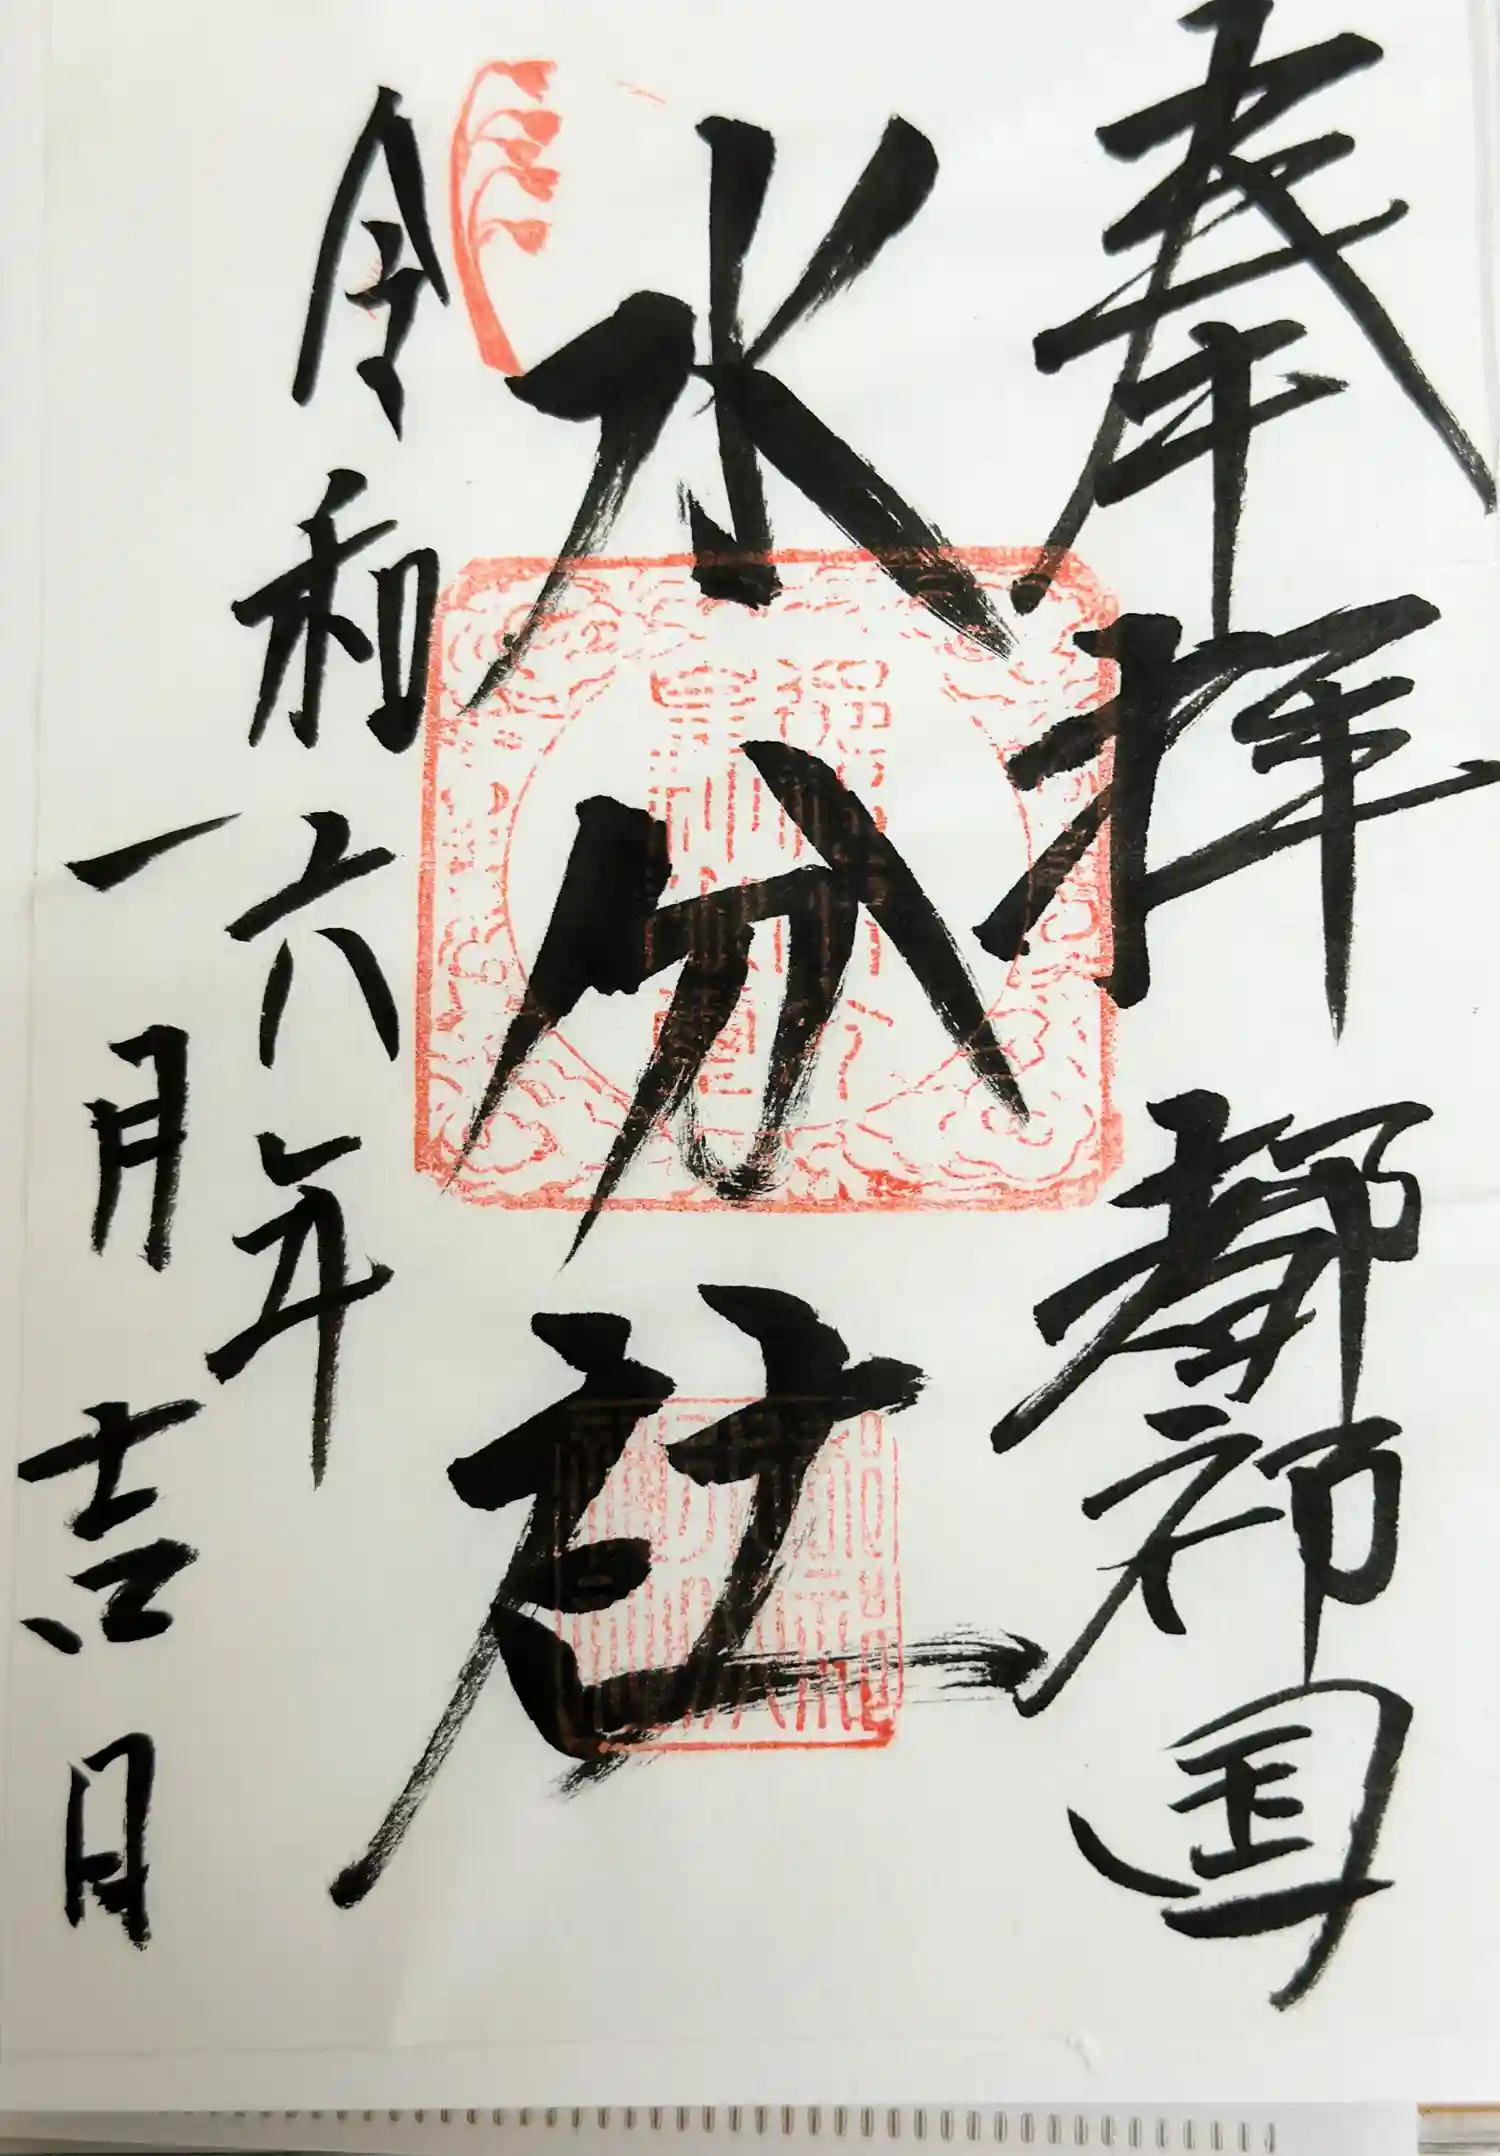 奉拝 都祁国
水分社
令和六年
一月吉日